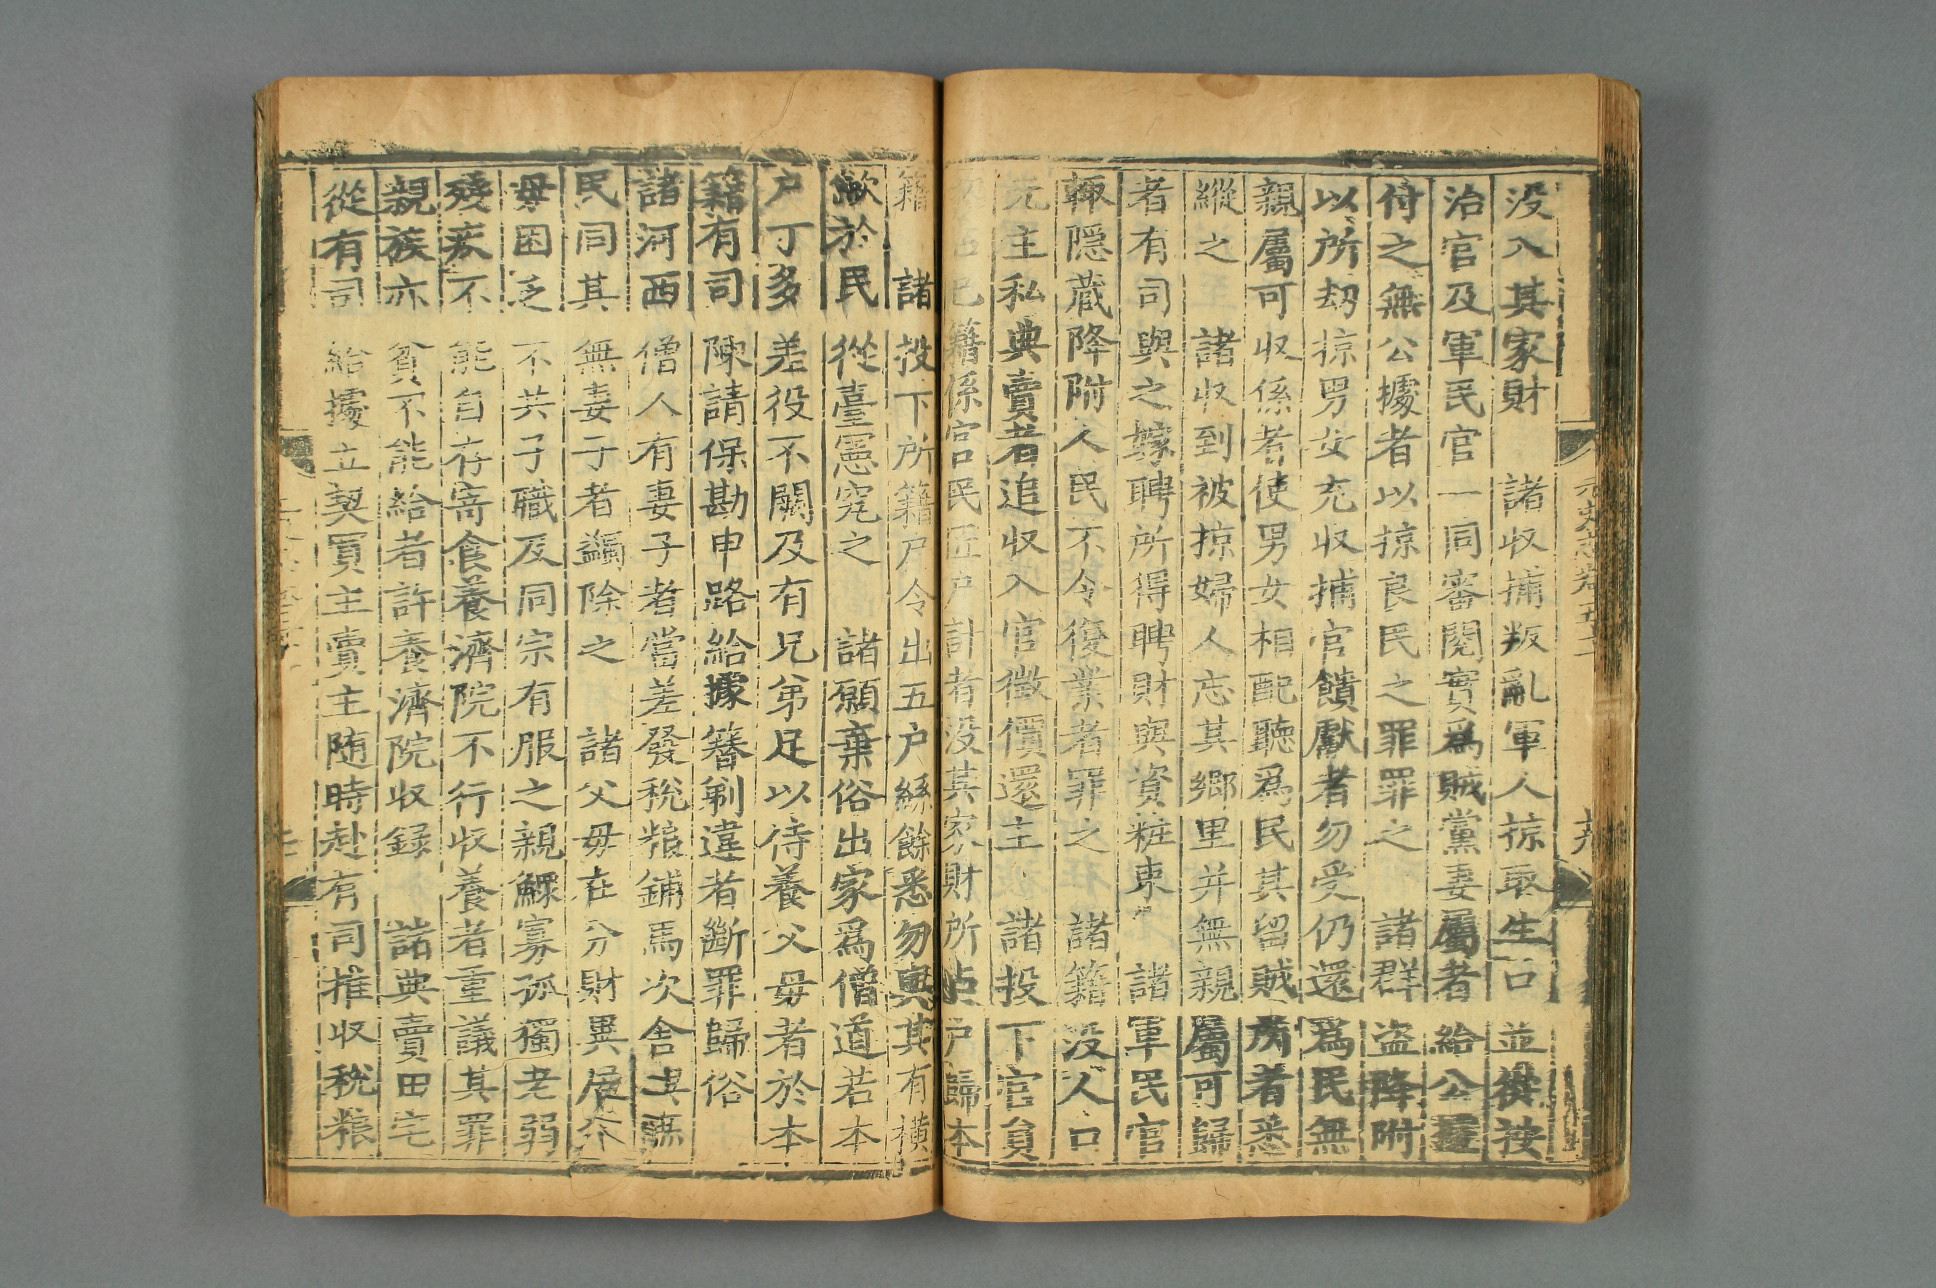 没入其家財　諸收捕叛亂軍人掠取生口並從按
治官及軍民官一同審閱實爲賊黨妻屬者給公據
付之無公據者以掠良民之罪罪之　諸群盗降附
以所刼掠男女充收捕官饋獻者勿受仍還爲民無
親屬可收係者使男女相配聽爲民其留賊所者悉
縱之　諸收到被掠婦人忘其鄉里并無親屬可歸
者有司與之嫁聘所得聘財與資粧束　諸軍民官
輙隱蔵降附人民不令復業者罪之　諸籍没人口
元主私典賣者追收入官徵價還主　諸投下官員
招占已籍係官民匠户計者没其家財所占户歸本
籍　諸投下所籍户令出五户絲餘悉勿與其有横
歛於民從臺憲究之　諸願棄俗出家爲僧道若本
户丁多差役不闕及有兄弟足以待養父毋者於本
籍有司陳請保勘申路給據簪剃違者斷罪歸俗
諸河西僧人有妻子者當差發稅粮鋪馬次舍與庶
民同其無妻子者蠲除之　諸父毋在分財異居父
毋困乏不共子職及同宗有服之親鰥寡孤獨老弱
殘疾不能自存寄食養濟院不行收養者重議其罪
親族亦貧不能給者許養濟院收録　諸典賣田宅
從有司給據立契買主賣主随時赴有司推收稅粮